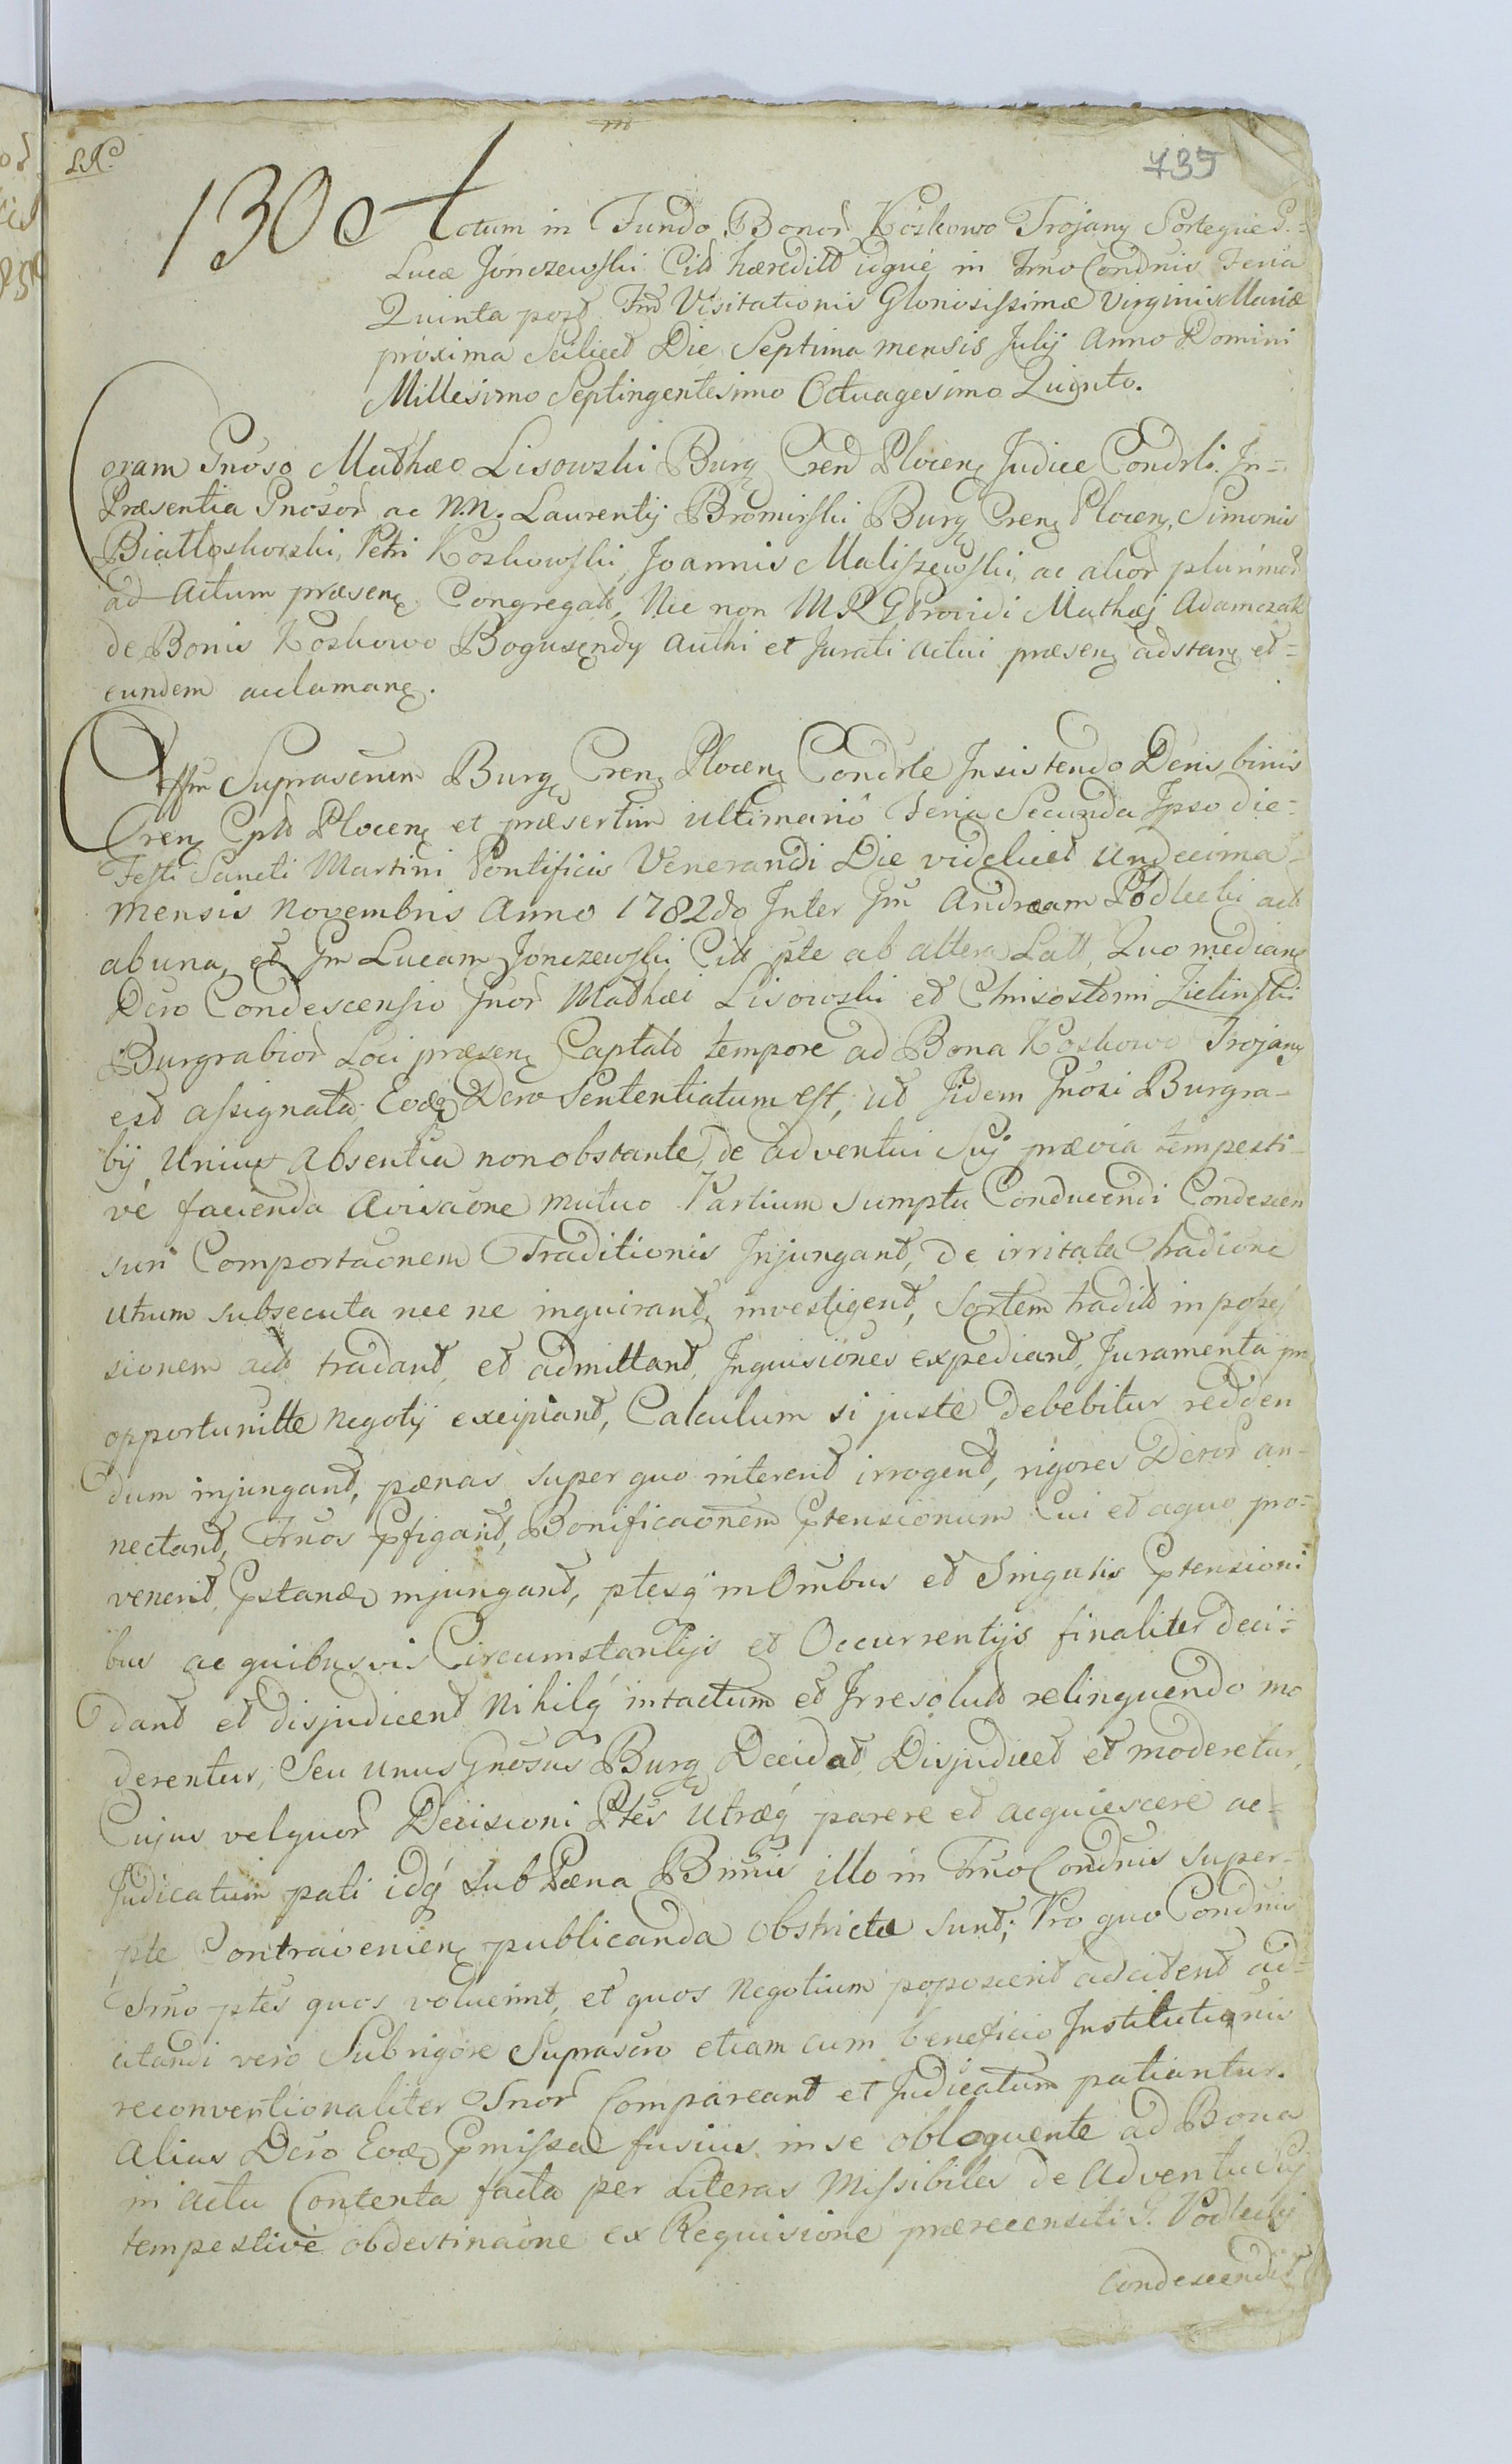 739
130
Actum in Fundo Bonor Koskowo Trojany Sorteque G.
Lucæ Jonczewski Citt hæreditt idque in Trno Condnis Feria
Quinta post Ftm Visitationis Gloriosissimæ Virginis Mariæ
proxima Scilicet Die Septima mensis Julij Anno Domini
Millesimo Septingentesimo Octuagesimo Quinto.
Coram Gnoso Mathæo Lisowski Burg Cren Plocen Judice Condrli. In=
Præsentia Gnosor ac N.N. Laurentij Bromirski Burg Cren Plocen, Simonis
Białłoskorski, Petri Koskowski, Joannis Maliszewski, ac alior plurimor
ad Actum præsen Congregatt, Nec non M R G Providi Mathæj Adamczak
de Bonis Koskowo Bogusendy Authi et Jurati Actui præsen adstan et=
eundem acclaman.
Offm Suprascrium Burg Cren Plocen Condrle Insistendo Dcris binis
Cren Cptt Plocen et præsertim ultimario Feria Secunda Ipso die=
Festi Sancti Martini Pontificis Venerandi Die videlicet Undecima=
mensis Novembris Anno 1782do Inter Gm Andræam Podlecki actt
ab una, et Gm Lucam Jonczewski Citt pte ab altera Latt, Quo median
Dcro Condescensio Gnor Mathæi Lisowski et Chrisostomi Zielinski
Burgrabior Loci præsen Captato tempore ad Bona Koskowo Trojany
est assignata. Eoq Dcro Sententiatum est, ut Iidem Gnosi Burgra=
bij, Unius Absentia non obstante, de adventui Suj prævia tempesti=
vè facienda Avisaone mutuo Partium Sumptu Conducendi Condescen
suri Comportaonem Traditionis Injungant, De irritata tradione
utrum subsecuta nec ne inquirant, investigent, Sortem tradit in posses
sionem actt tradant, et admittant, Inquisiones expediant, Juramenta pro
opportunitte Negotij excipiant, Calculum si juste debebitur redden
dum injungant, pænas super quo interent irrogent, rigores Dcror an=
nectant, Trnos Pfigant, Bonificaonem Ptensionum Cui et a quo pro=
venerit, Pstandæ injungant, ptesq in Omibus et Singulis Ptensioni
bus ac quibusvis Circumstantijs et Occurrentijs finaliter deci=
dant et disjudicent Nihilq intactum et Irresolutt relinquendo mo
derentur, Seu unus Gnosus Burg Decidat Disjudicet et moderetur,
Cujus vel quor Decisioni Ptes Utræq parere et acquiescere ac=
Judicatum pati idq sub Pæna Bimis illo in Trno Condnis super=
pte Contravenien publicanda obstrictæ sunt; Pro quo Condnis
Trno ptes quos voluerint, et quos Negotium poposcerit adcitent ad=
citandi vero Sub rigore Suprascro etiam cum beneficio Institutionis
reconventionaliter Trnor Compareant et Judicatum patiantur.
Alias Dcro Eod Pmissa fusius in se obloquente ad Bona
in Actu Contenta facta per Literas Missibiles de Adventu Suj
tempestive obdestinaone ex Requisione prærecensiti G. Podlecki
Condescendit